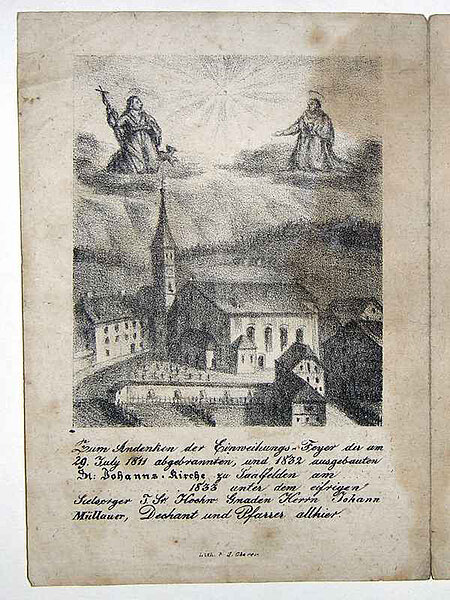 Zum Andenken der Einweihungs-Feyer der am
29. July 1811 abgebrannten, und 1832 ausgebauten
St. Johanns-Kirche zu Saalfelden am
1833 unter dem eifrigen
Seelsorger T. Sr. Hochw. Gnaden Herrn Johann
Müllauer, Dechant und Pfarrer allhier.
Lith. v. J.